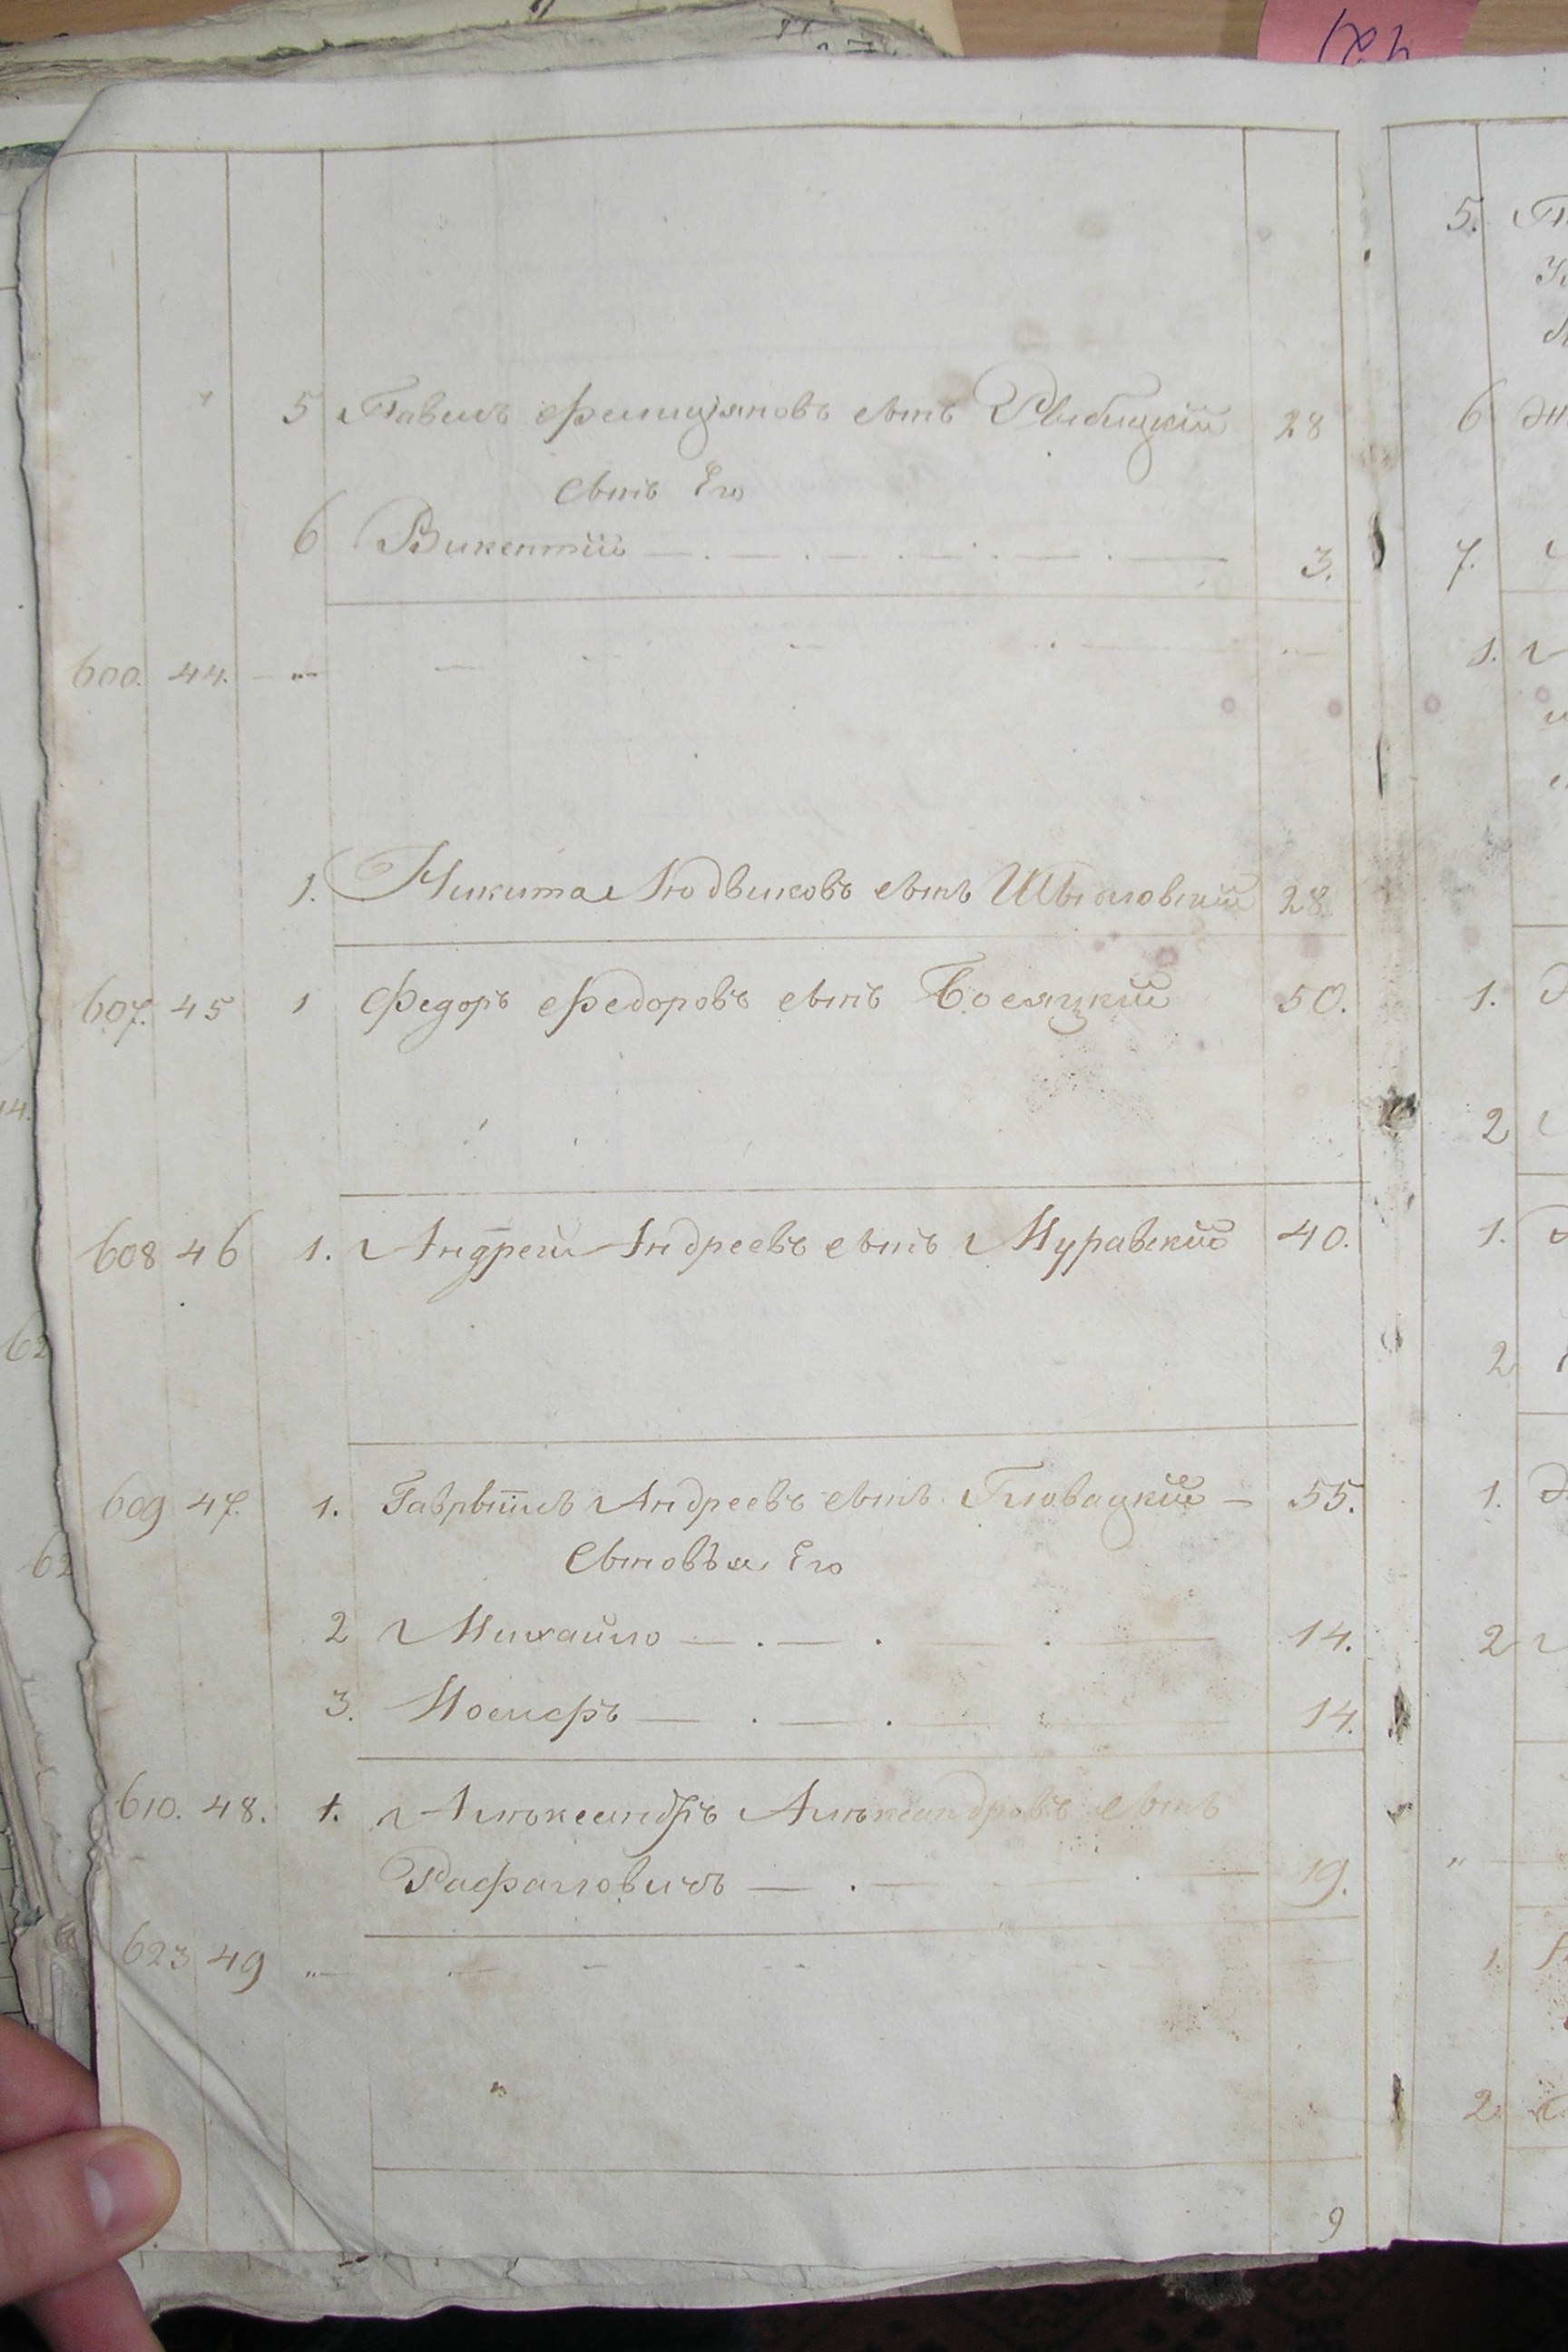 5 Павелъ Фелиціяновъ сынъ Рыбицкій 28
сынъ Его
6 Викентій 3.
600. 44. „
1. Никита Людвиковъ сынъ Шыдловскій 28
607. 45 1 Федоръ Федоровъ сынъ Босяцкий 50.
608 46 1. Андрей Андреевъ сынъ Муравский 40.
609 47. 1. Гаврыилъ Андреевъ сынъ Гловацкий 55.
Сыновъя Его
2 Михайло 14.
3. Иосифъ 14.
610. 48. 1. Алѣксандръ Алѣксандровъ сынъ
Рафаловичъ 19.
623 49 „
9
5.
6
7.
1.
1.
2
1.
2
1.
2
„
1.
2